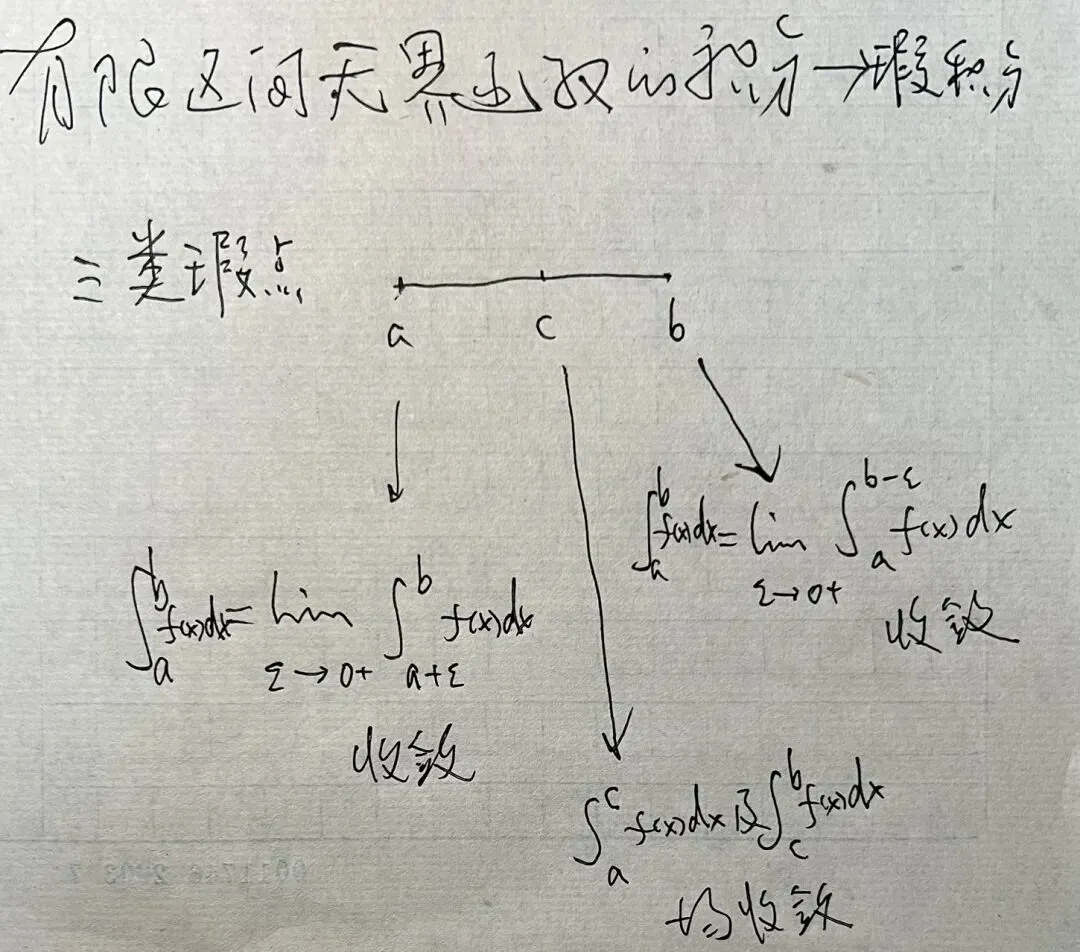 有限区间无界函数的积分→瑕积分
三类瑕点
a c b
∫_a^b f(x)dx = lim_{ε→0+} ∫_a^{b-ε} f(x)dx
收敛
∫_a^b f(x)dx = lim_{ε→0+} ∫_{a+ε}^b f(x)dx
收敛
∫_a^c f(x)dx 及 ∫_c^b f(x)dx
均收敛